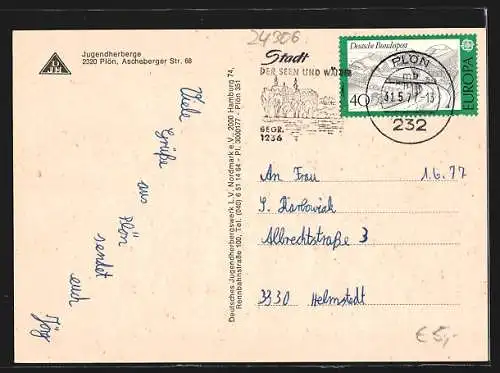 24306
Jugendherberge
2320 Plön, Ascheberger Str. 68
DJH
Stadt
DER SEEN UND WÄLDER
BEGR.
1236
Deutsche Bundespost
40
EUROPA
PLÖN
mb
31.5.77-13
232
Viele Grüße
aus Plön
sendet
euch
Jörg
Deutsches Jugendherbergswerk L.V. Nordmark e.V., 2000 Hamburg 74,
Rennbahnstraße 100, Tel. (040) 6 51 14 94 - PI. 3000177 - Plön 351
An Frau
1.6.77
Albrechtstraße 3
3330 Helmstedt
€5,-